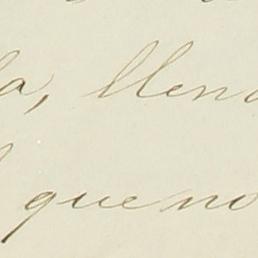 la, llena
que no